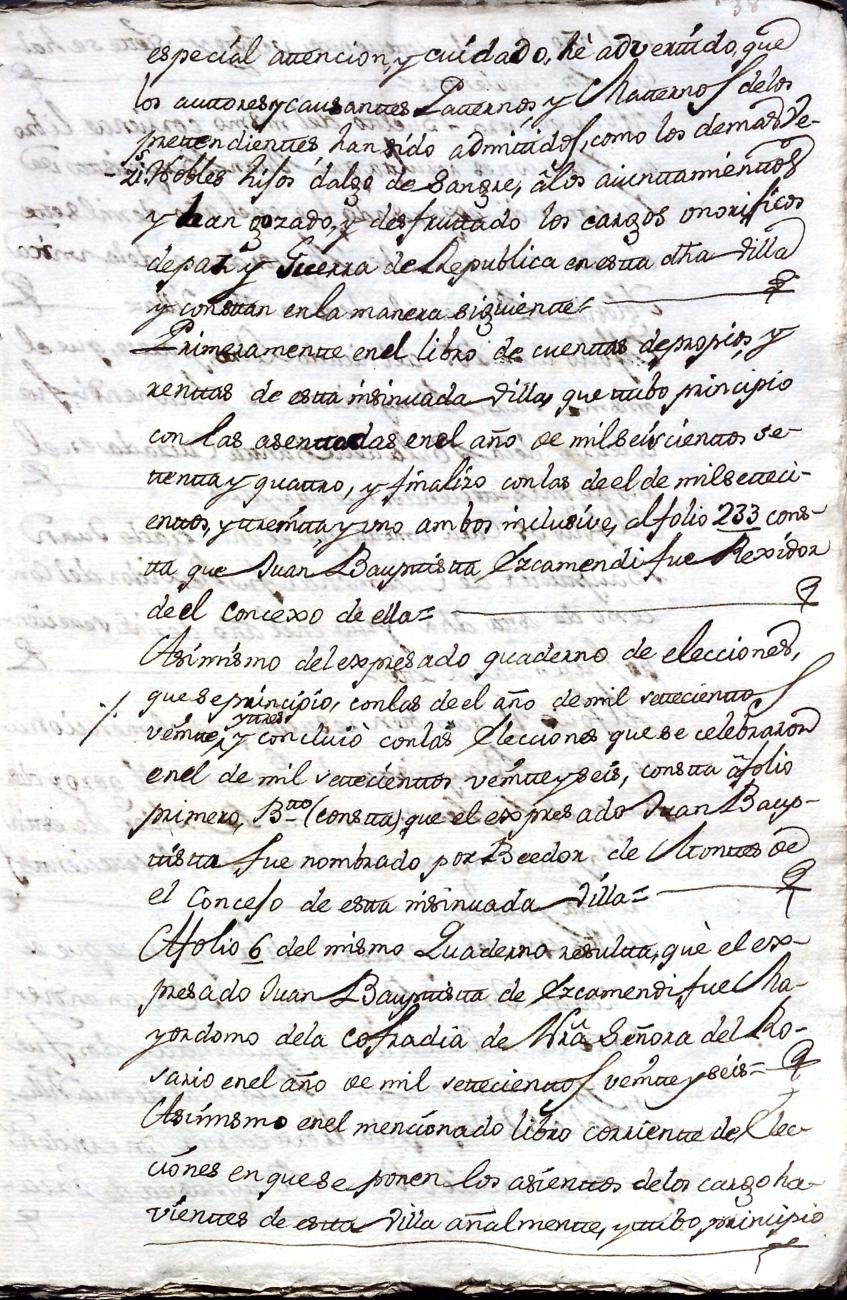 especial attencion, y cuidado, hè advertido, que
los auttores y causanttes Patternos y Matternos de los
prettendienttes han sido admitidos, como los demas Ve-
-zi.s Nobles hijos d'algo de Sangre, â los aiunttamienttos
y han gozado, y desfruttado los cargos onorificos
de paz y Guerra de Republica en estta dha Villa
y consttan en la manera siguientte=
Primeramentte en el libro de cuenttas de propios, y
renttas de estta insinuada Villa, que ttubo principio
con las asenttadas en el año de mil seiscienttos se-
ttentta y quattro, y finalizo con las de el de mil setteci-
enttos, y ttreintta, y uno ambos inclusive, al folio 233 cons-
tta que Juan Bauptistta Yzcamendi fue Rexidor
de el Concexo de ella=
Asimismo del expresado quaderno de elecciones,
que se principio, con las de el año de mil settecienttos
veintte, y ttres y concluiò con las Elecciones que se celebraron
en el de mil settecienttos veintte y seis, constta â folio
primero, B.tto (constta) que el expresado Juan Baup-
tistta fue nombrado por Beedor de Monttes de
el Concejo de estta insinuada Villa=
Al folio 6 del mismo Quaderno resultta, què el ex-
presado Juan Bauptistta de Yzcamendi fue Ma-
yordomo de la Cofradia de Nrâ Señora del Ro-
sario en el año de mil settecienttos veintte y seis=
Asimismo en el mencionado libro corrientte de Elec-
ciones en que se ponen los asienttos de los cargo ha-
vienttes de estta Villa añalmentte, y ttubo principio